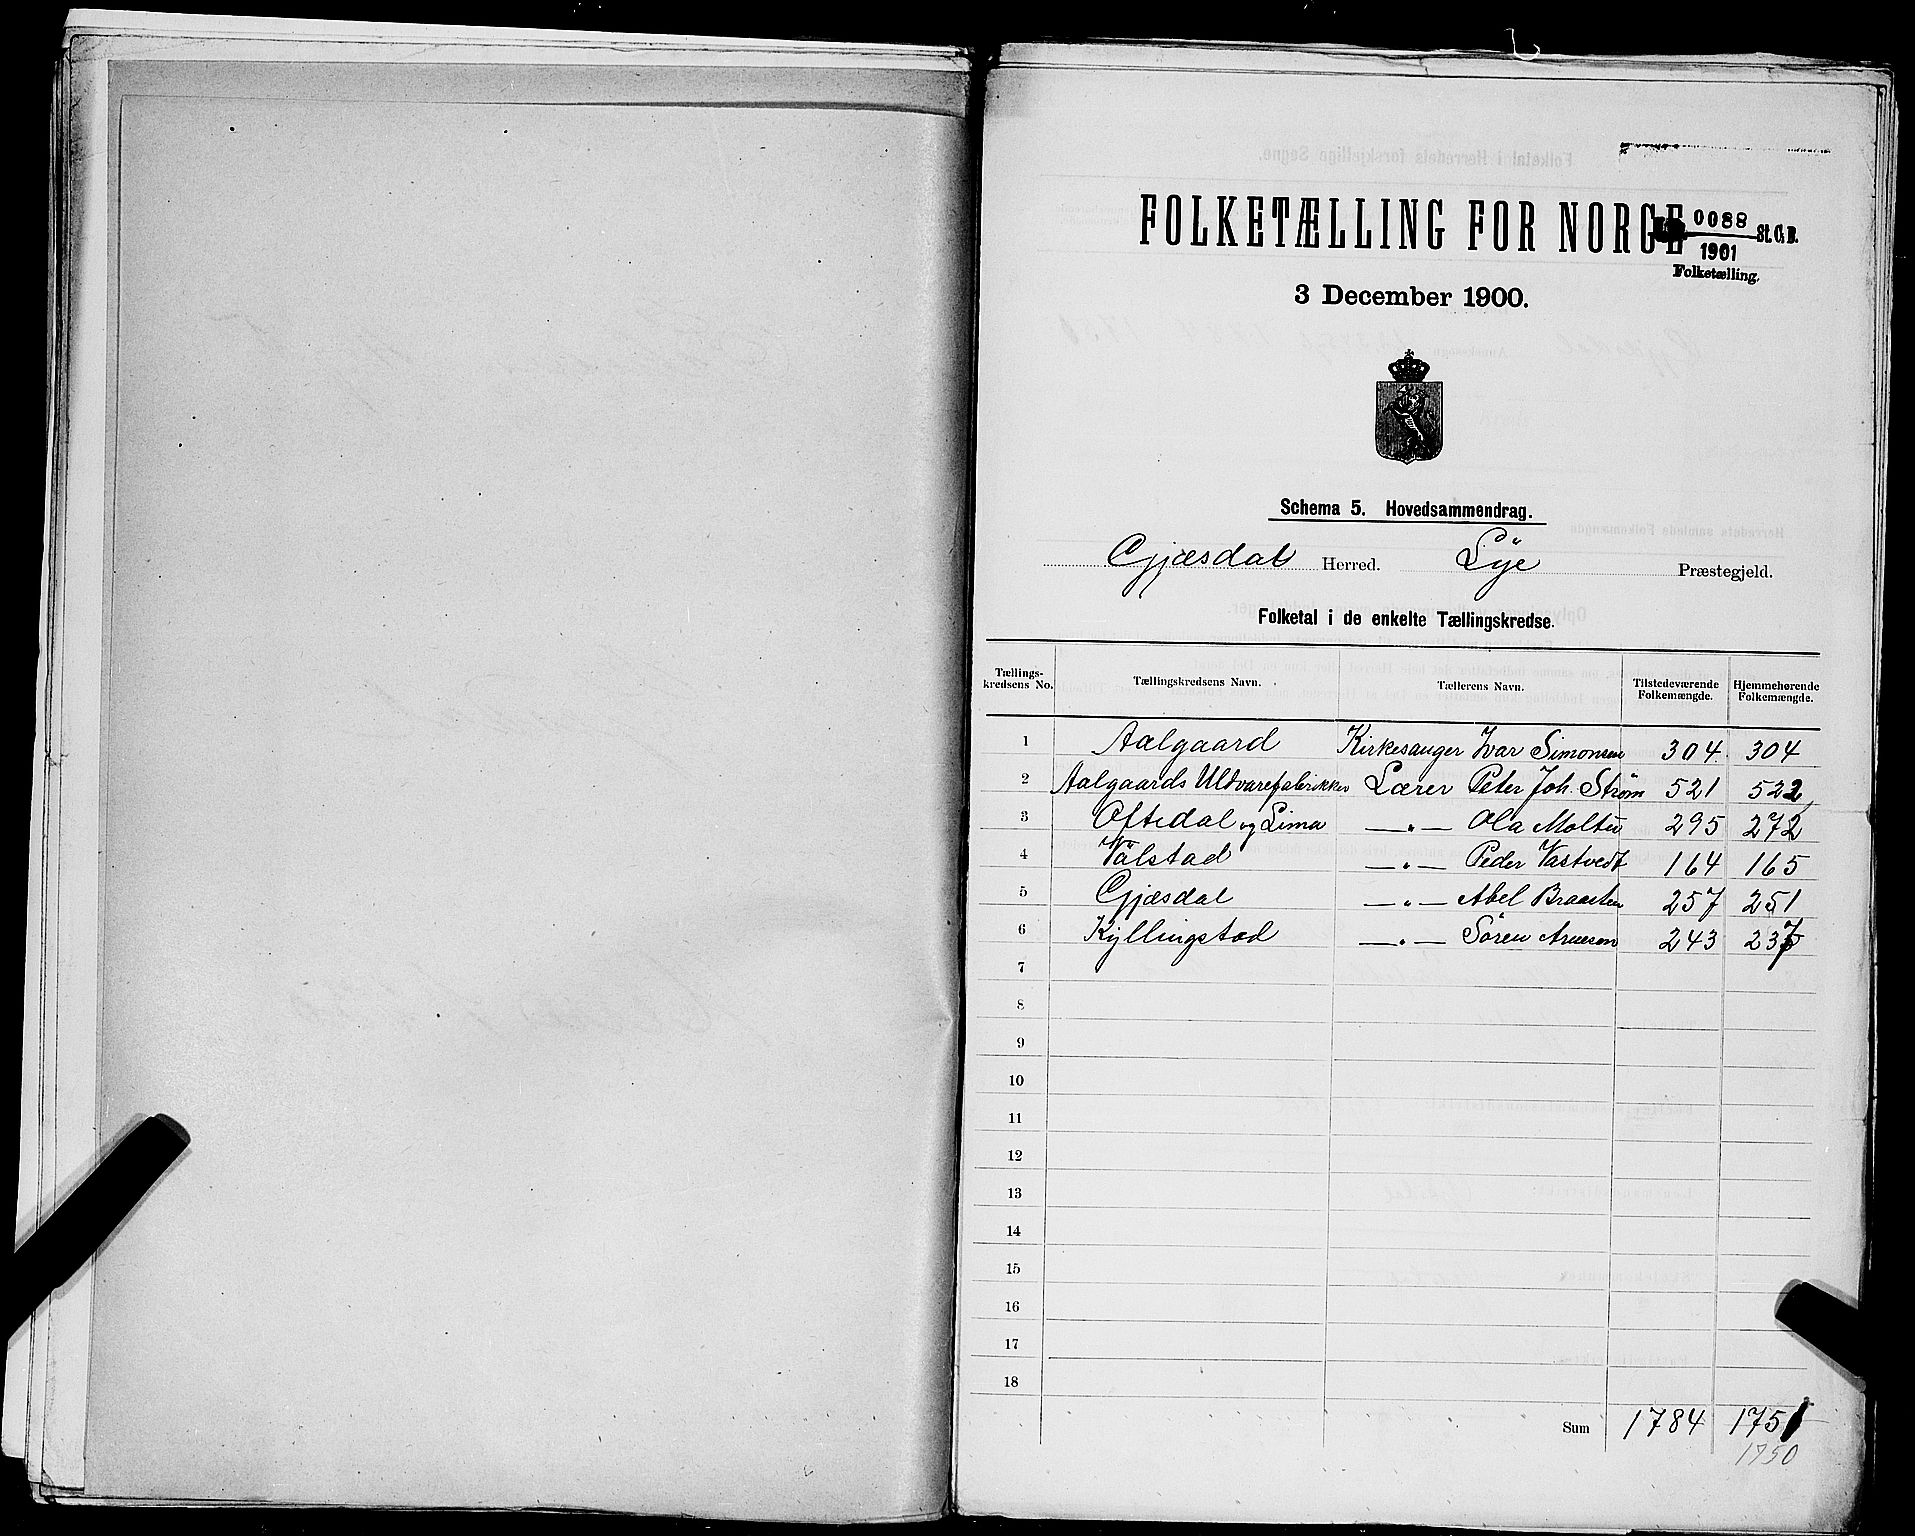 FOLKETÆLLING FOR NORGE
0088 St. C. B.
1901
Folketælling.
3 December 1900.
Schema 5. Hovedsammendrag.
Gjæsdal Herred. Lÿe Præstegjeld.
Folketal i de enkelte Tællingskredse.
Tællings-kredsens No. Tællingskredsens Navn. Tællerens Navn. Tilstedeværende Folkemængde. Hjemmehørende Folkemængde.
1 Aalgaard Kirkesanger Ivar Simonsen 304 304
2 Aalgaards Uldvarefabrikker Lærer Peter Joh. Ström 521 522
3 Oftedal og Lima —"— Ola Molteu 295 272
4 Välstad —"— Peder Vastvedt 164 165
5 Gjæsdal —"— Abel Braasten 257 251
6 Kyllingstad —"— Sören Arneson 243 237
7
8
9
10
11
12
13
14
15
16
17
18
Sum 1784 1751
1750